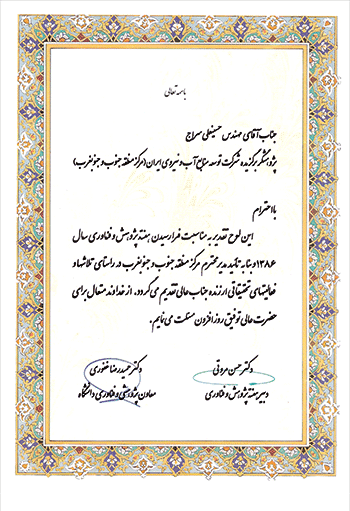 باسمه تعالی
جناب آقای مهندس حسینعلی سراج
پژوهشگر برگزیده شرکت توسعه منابع آب و نیروی ایران (مرکز منطقه جنوب و جنوبغرب)
با احترام
این لوح تقدیر به مناسبت فرا رسیدن هفته پژوهش و فناوری سال
۱۳۸۶ و بنا به تائید مدیر محترم مرکز منطقه جنوب و جنوبغرب در راستای تلاشها و
فعالیتهای تحقیقاتی ارزنده جنابعالی تقدیم می گردد. از خداوند متعال برای
حضرت عالی توفیق روزافزون مسئلت می نمایم.
دکتر حسن مروتی
دبیر هفته پژوهش و فناوری
دکتر حمیدرضا غفوری
معاون پژوهشی و فناوری دانشگاه